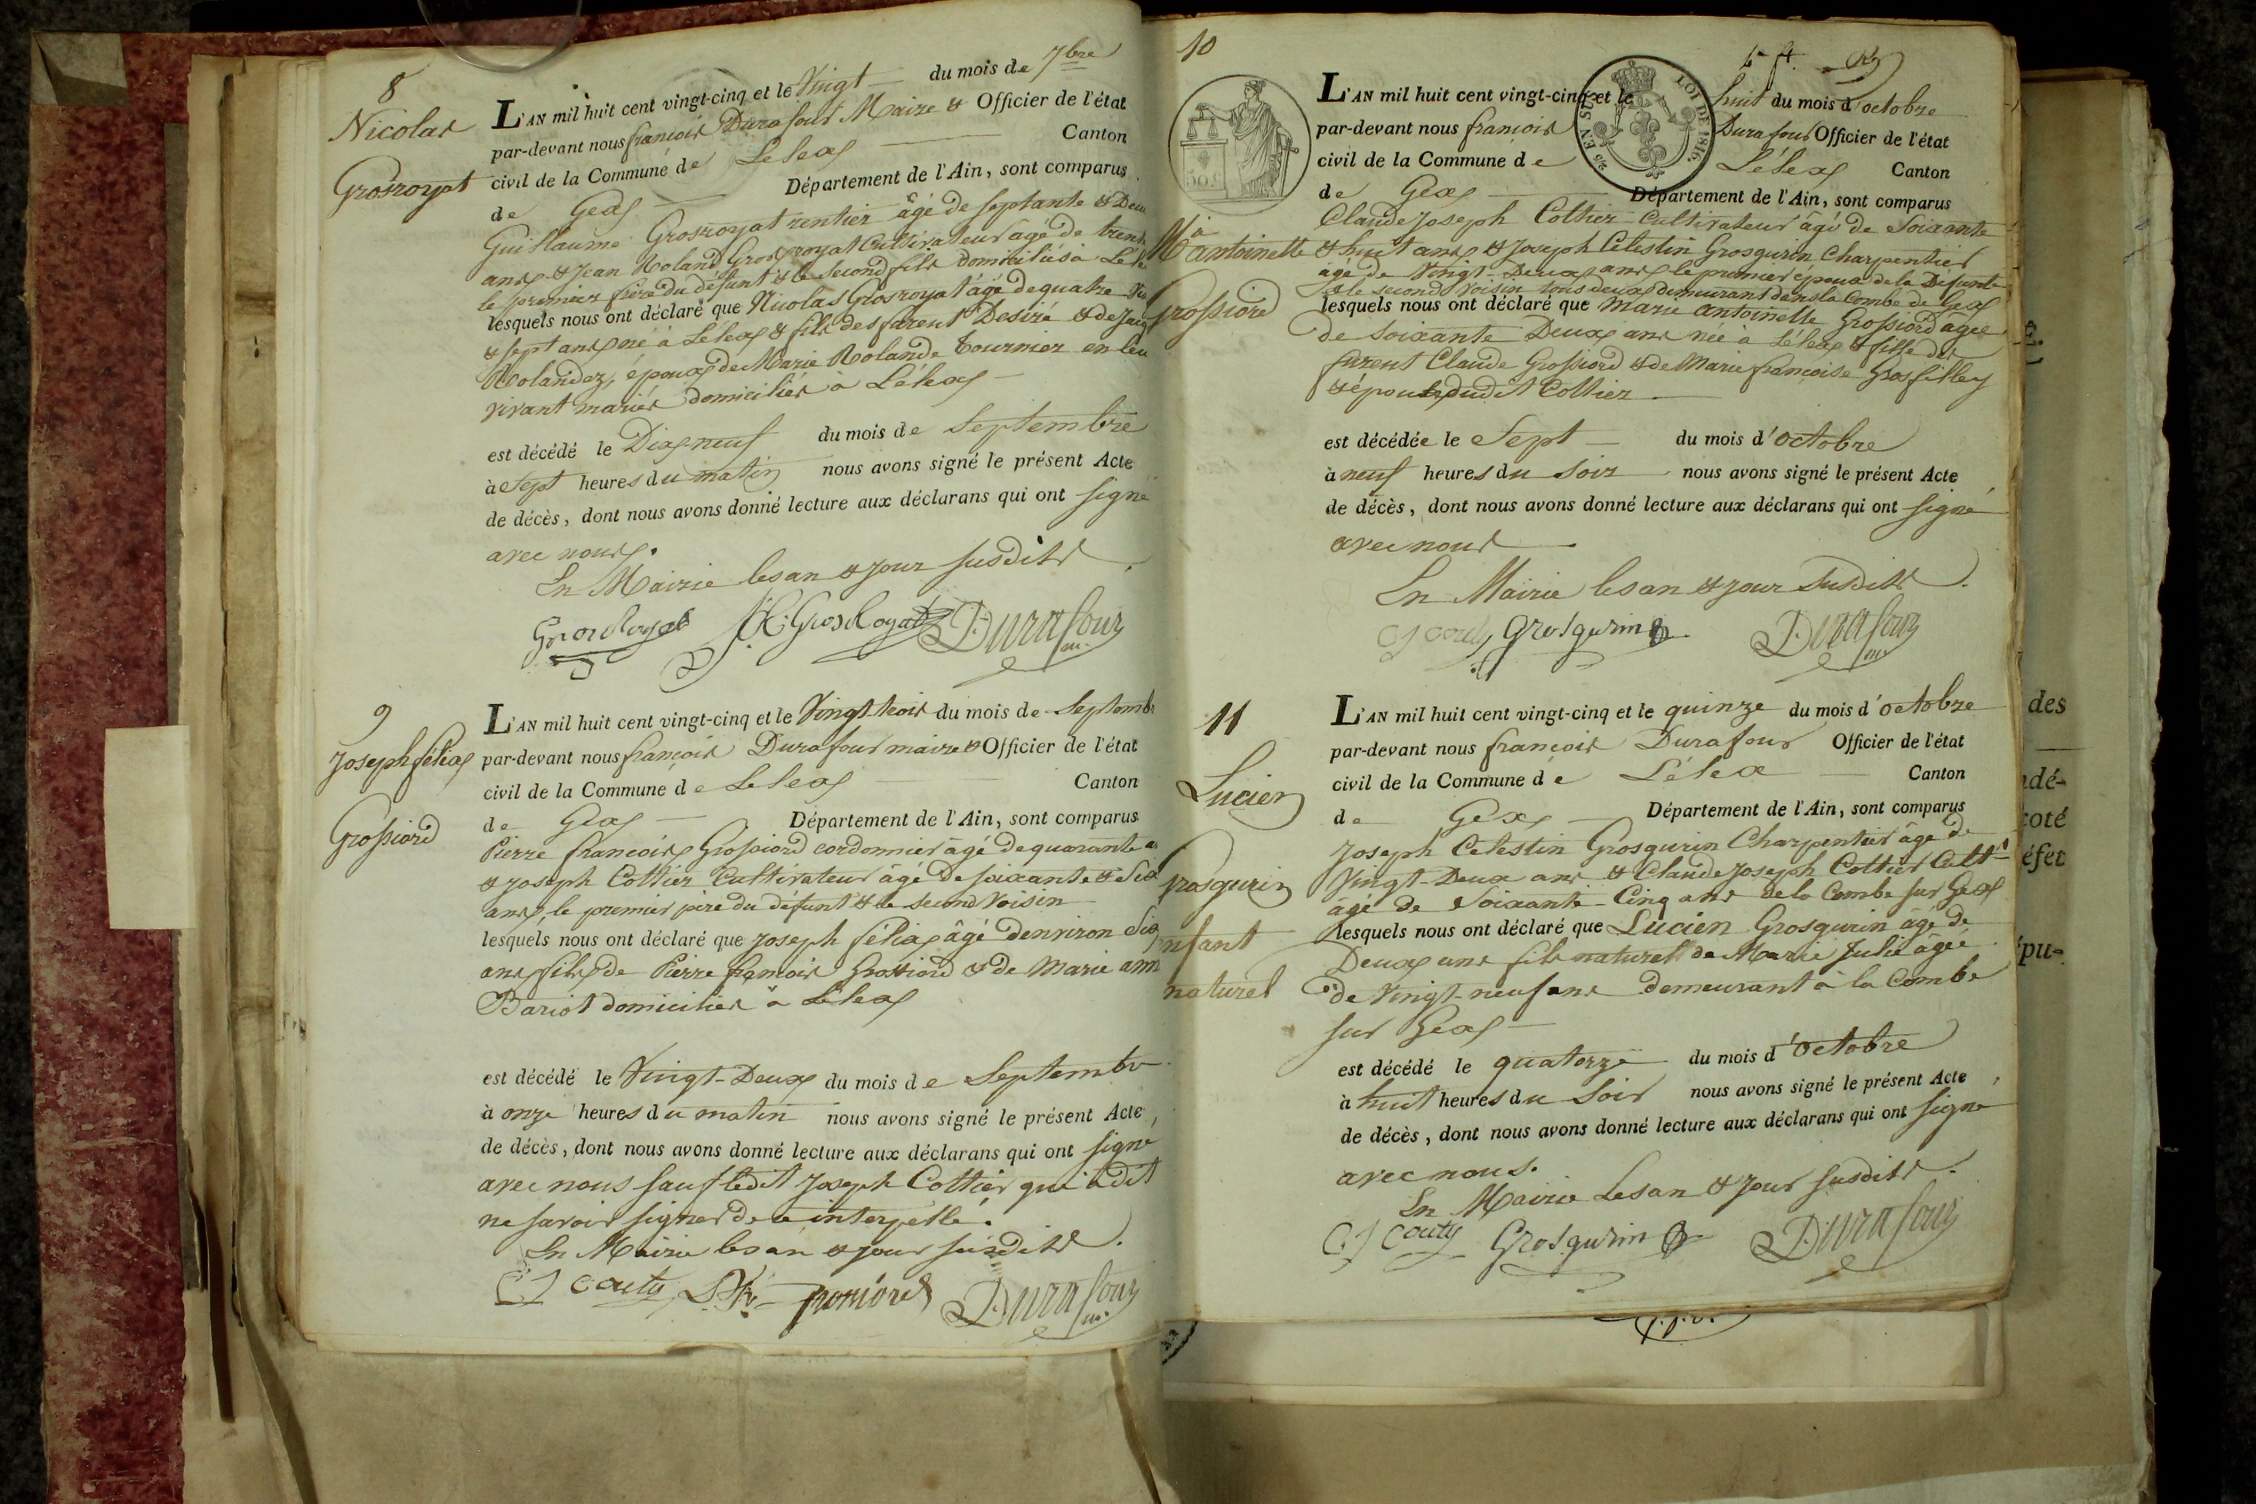 8
Nicolas
Grosroyat
L'AN mil huit cent vingt-cinq et le Vingt du mois de 7bre
par-devant nous francois Durafour Maire & Officier de l'état
civil de la Commune de Leleax Canton
de Geax Département de l'Ain, sont comparus
Guillaume Grosroyat rentier âgé de septante & Deux
ans & Jean Roland Grosroyat Cultivateur âgé de trente
le premier frère du défunt & le second fils domiciliés à Léle
lesquels nous ont déclaré que Nicolas Grosroyat âgé de quatre Vin
& sept ans né à Léleax & fils des furent Desiré & de Jacq
Rolandez, époux de Marie Rolande Tournier en leu
vivant mariés domiciliés à Léleax
est décédé le Dixneuf du mois de Septembre
à Sept heures du matin nous avons signé le présent Acte
de décès, dont nous avons donné lecture aux déclarans qui ont signé
avec nous.
En Mairie les an & jour susdits.
Grosroyat Grosroyat Durafour
9
Joseph félix
Grossiord
L'AN mil huit cent vingt-cinq et le Vingt-trois du mois de Septemb
par-devant nous francois Durafour maire & Officier de l'état
civil de la Commune de Leleax Canton
de Geax Département de l'Ain, sont comparus
Pierre francois Grossiord cordonnier âgé de quarante
& Joseph Cottier Cultivateur âgé de soixante & Six
ans le premier père du défunt & le second Voisin
lesquels nous ont déclaré que Joseph félix âgé denviron Six
ans fils de Pierre francois Grossiord & de Marie ann
Bariot domiciliés à Léleax
est décédé le Vingt-Deux du mois de Septembre
à onze heures du matin nous avons signé le présent Acte,
de décès, dont nous avons donné lecture aux déclarans qui ont signé
avec nous sauf ledit Joseph Cottier qui a dit
ne savoir signer de ce interpellé.
En Mairie les an & jour susdits.
CJ Couty Durafour
10
L'AN mil huit cent vingt-cinq et le huit du mois d'octobre
par-devant nous francois Durafour Officier de l'état
civil de la Commune de Léleax Canton
de Geax Département de l'Ain, sont comparus
LOI DE 1816.
Ma antoinette
Grossiord
Claude Joseph Cottier Cultivateur âgé de Soixante
& huit ans & Joseph Célestin Grosgurin Charpentier
âgé de Vingt-Deux ans le premier époux de la Défunte
& le second Voisin tous deux demeurant dans la Combe de Geax
lesquels nous ont déclaré que Marie Antoinette Grossiord agée
de Soixante Deux ans née à Léleax & fille des
furent Claude Grossiord & de Marie françoise Grosfilley
& épouse dudit Cottier
est décédée le Sept du mois d'octobre
à neuf heures du Soir nous avons signé le présent Acte
de décès, dont nous avons donné lecture aux déclarans qui ont signé
avec nous
En Mairie les an & jour susdits.
CJ Couty Grosgurin Durafour
11
Lucien
Grosgurin
enfant
naturel
L'AN mil huit cent vingt-cinq et le quinze du mois d'octobre
par-devant nous francois Durafour Officier de l'état
civil de la Commune de Lélex Canton
de Gex Département de l'Ain, sont comparus
Joseph Celestin Grosgurin Charpentier âgé de
Vingt-Deux ans & Claude Joseph Cottier Cultr
âgé de Soixante-Cinq ans de la Combe sur Geax
lesquels nous ont déclaré que Lucien Grosgurin agé de
Deux ans fils naturel de Marie Julie âgée
de Vingt-neuf ans demeurant à la Combe
sur Geax
est décédé le quatorze du mois d'Octobre
à huit heures du Soir nous avons signé le présent Acte,
de décès, dont nous avons donné lecture aux déclarans qui ont signé
avec nous.
En Mairie Les an & Jour susdits.
CJ Couty Grosgurin Durafour
des
ndé-
coté
éfet
épu-